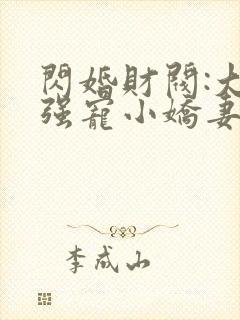 閃婚財閥:大
强寵小嬌妻
李成山